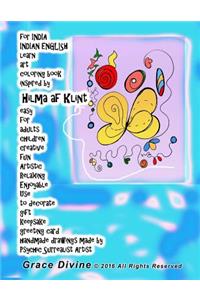 for INDIA
INDIAN ENGLISH
Learn
art
coloring book
inspired by
Hilma af Klint
easy
for
adults
children
creative
Fun
Artistic
Relaxing
Enjoyable
Use
to decorate
gift
Keepsake
greeting card
Handmade drawings made by
Psychic Surrealist Artist
Grace Divine © 2016 All Rights Reserved